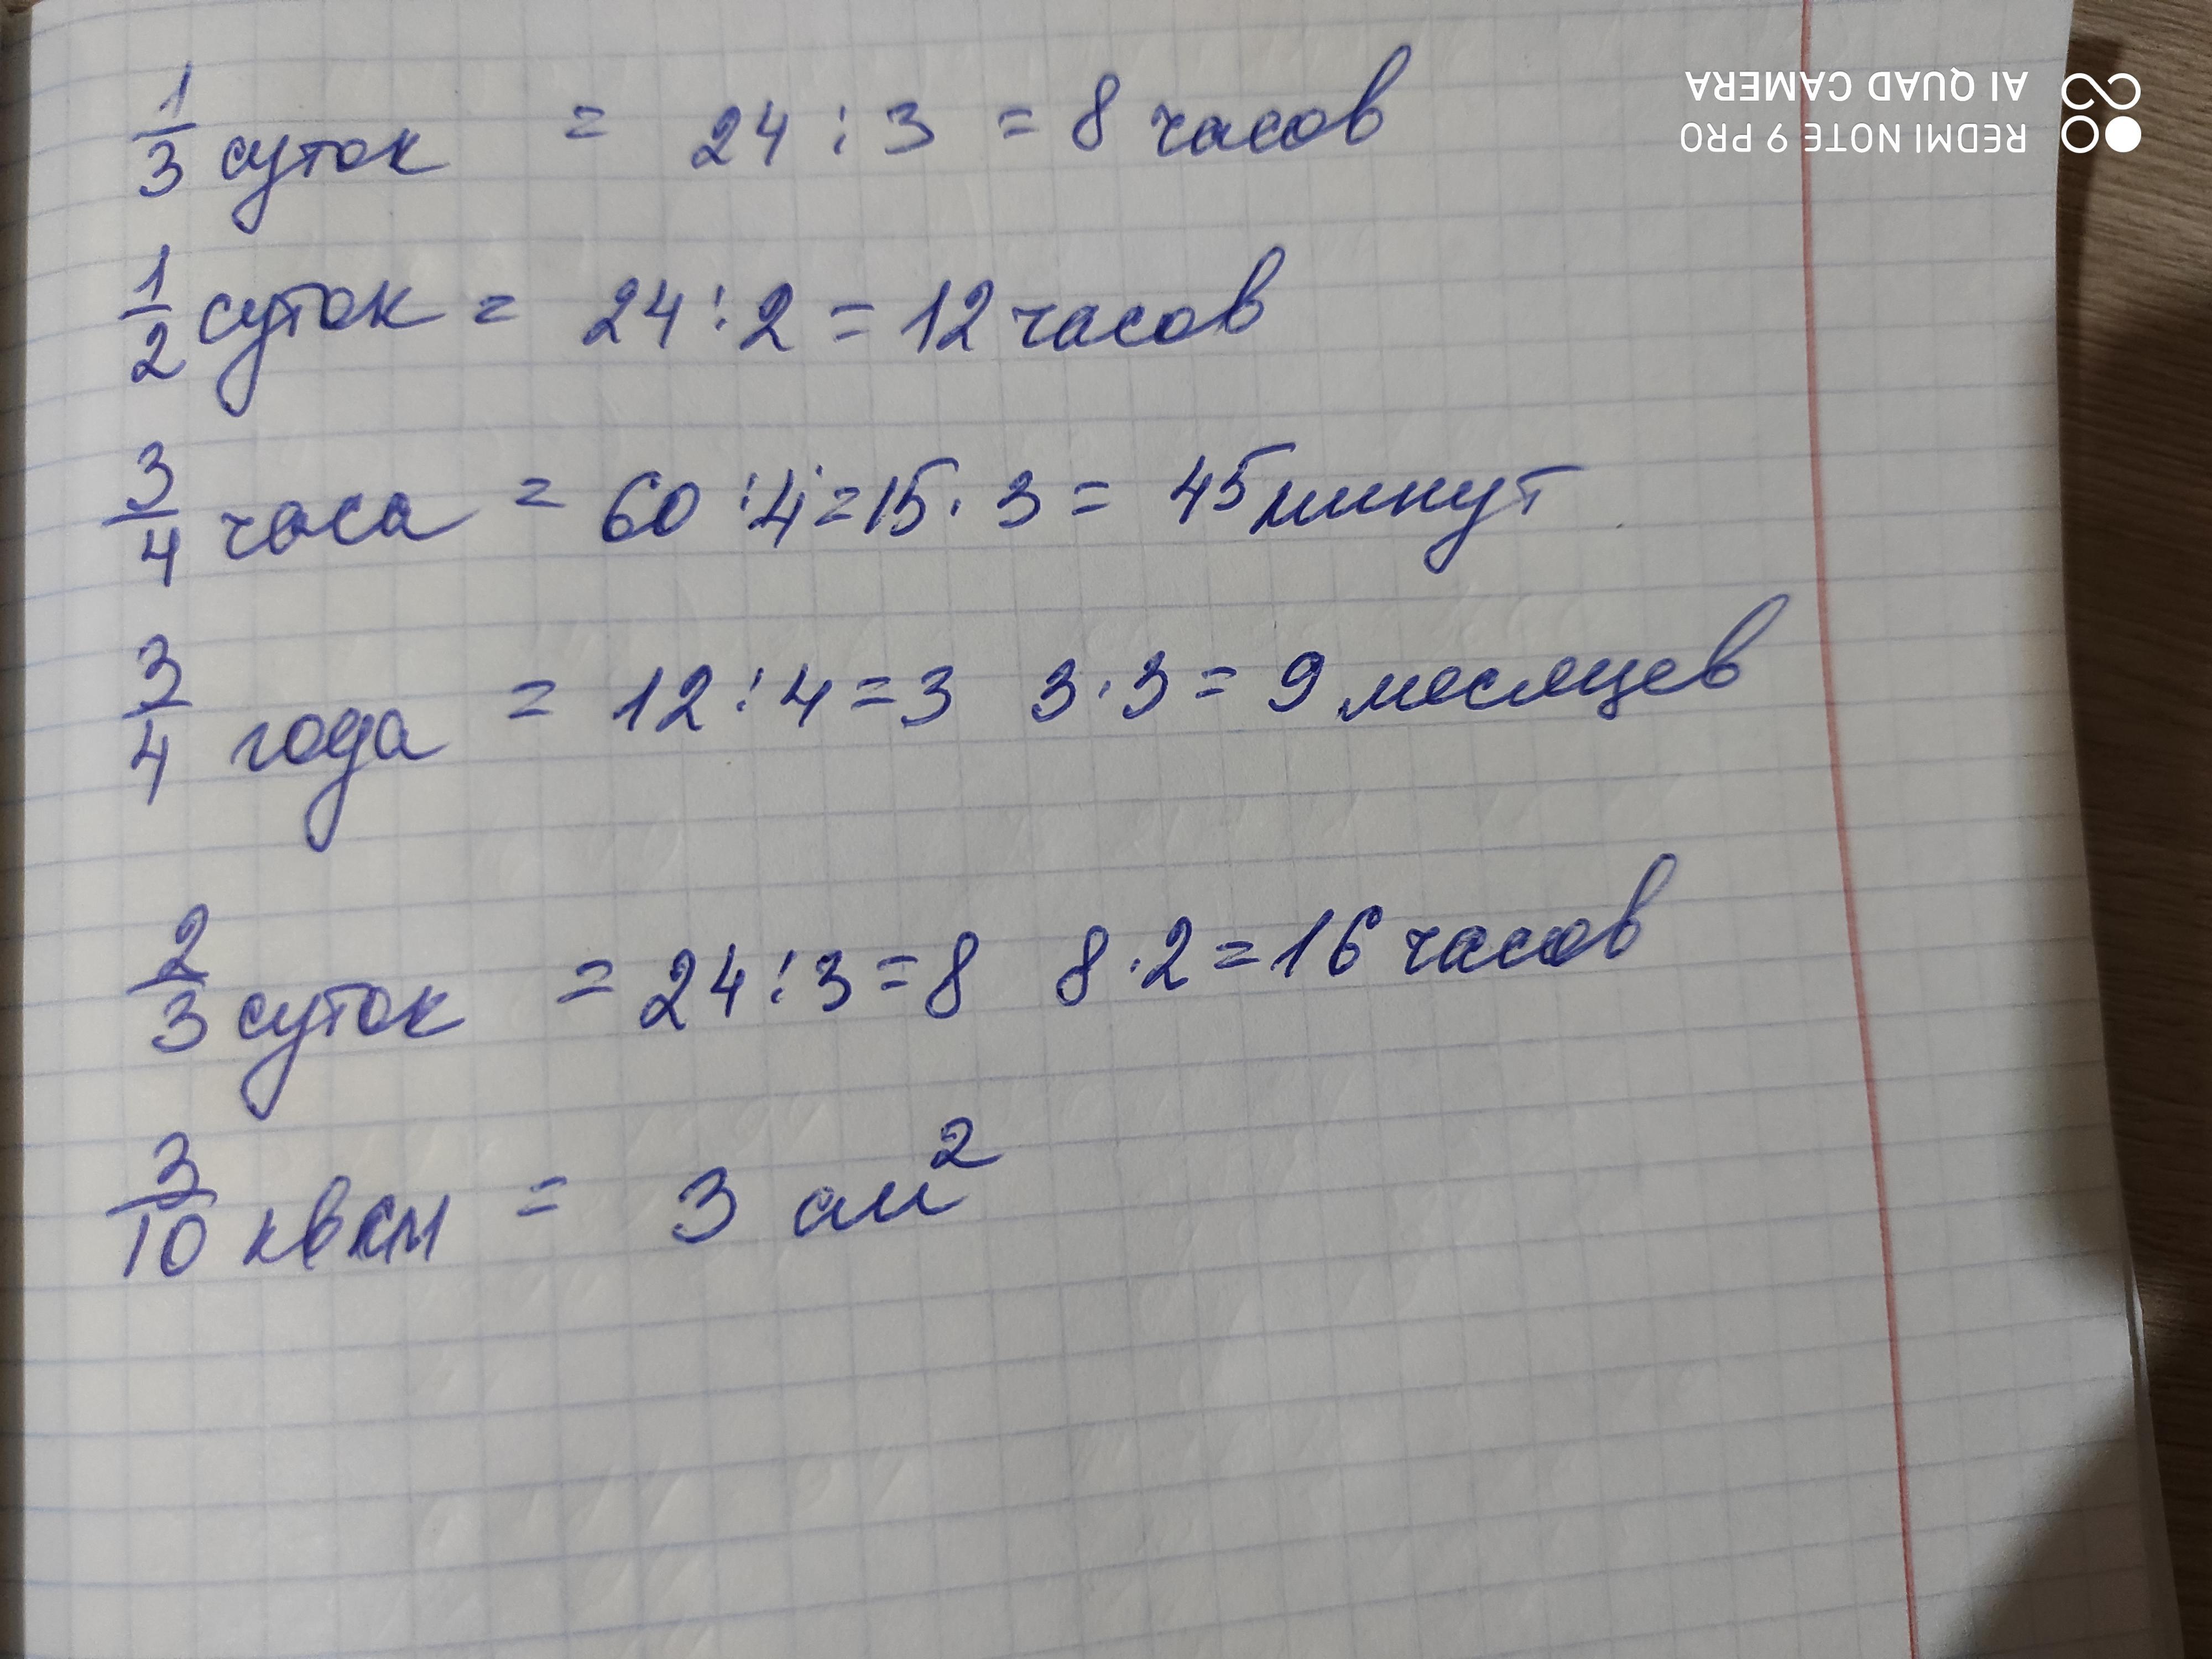 1/3 суток = 24 : 3 = 8 часов
1/2 суток = 24 : 2 = 12 часов
3/4 часа = 60 : 4 = 15 · 3 = 45 минут
3/4 года = 12 : 4 = 3 3 · 3 = 9 месяцев
2/3 суток = 24 : 3 = 8 8 · 2 = 16 часов
3/10 кв см = 3 см²
REDMI NOTE 9 PRO
AI QUAD CAMERA